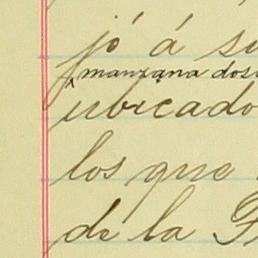 jó á su
manzana dos
ubicado
los que
de la